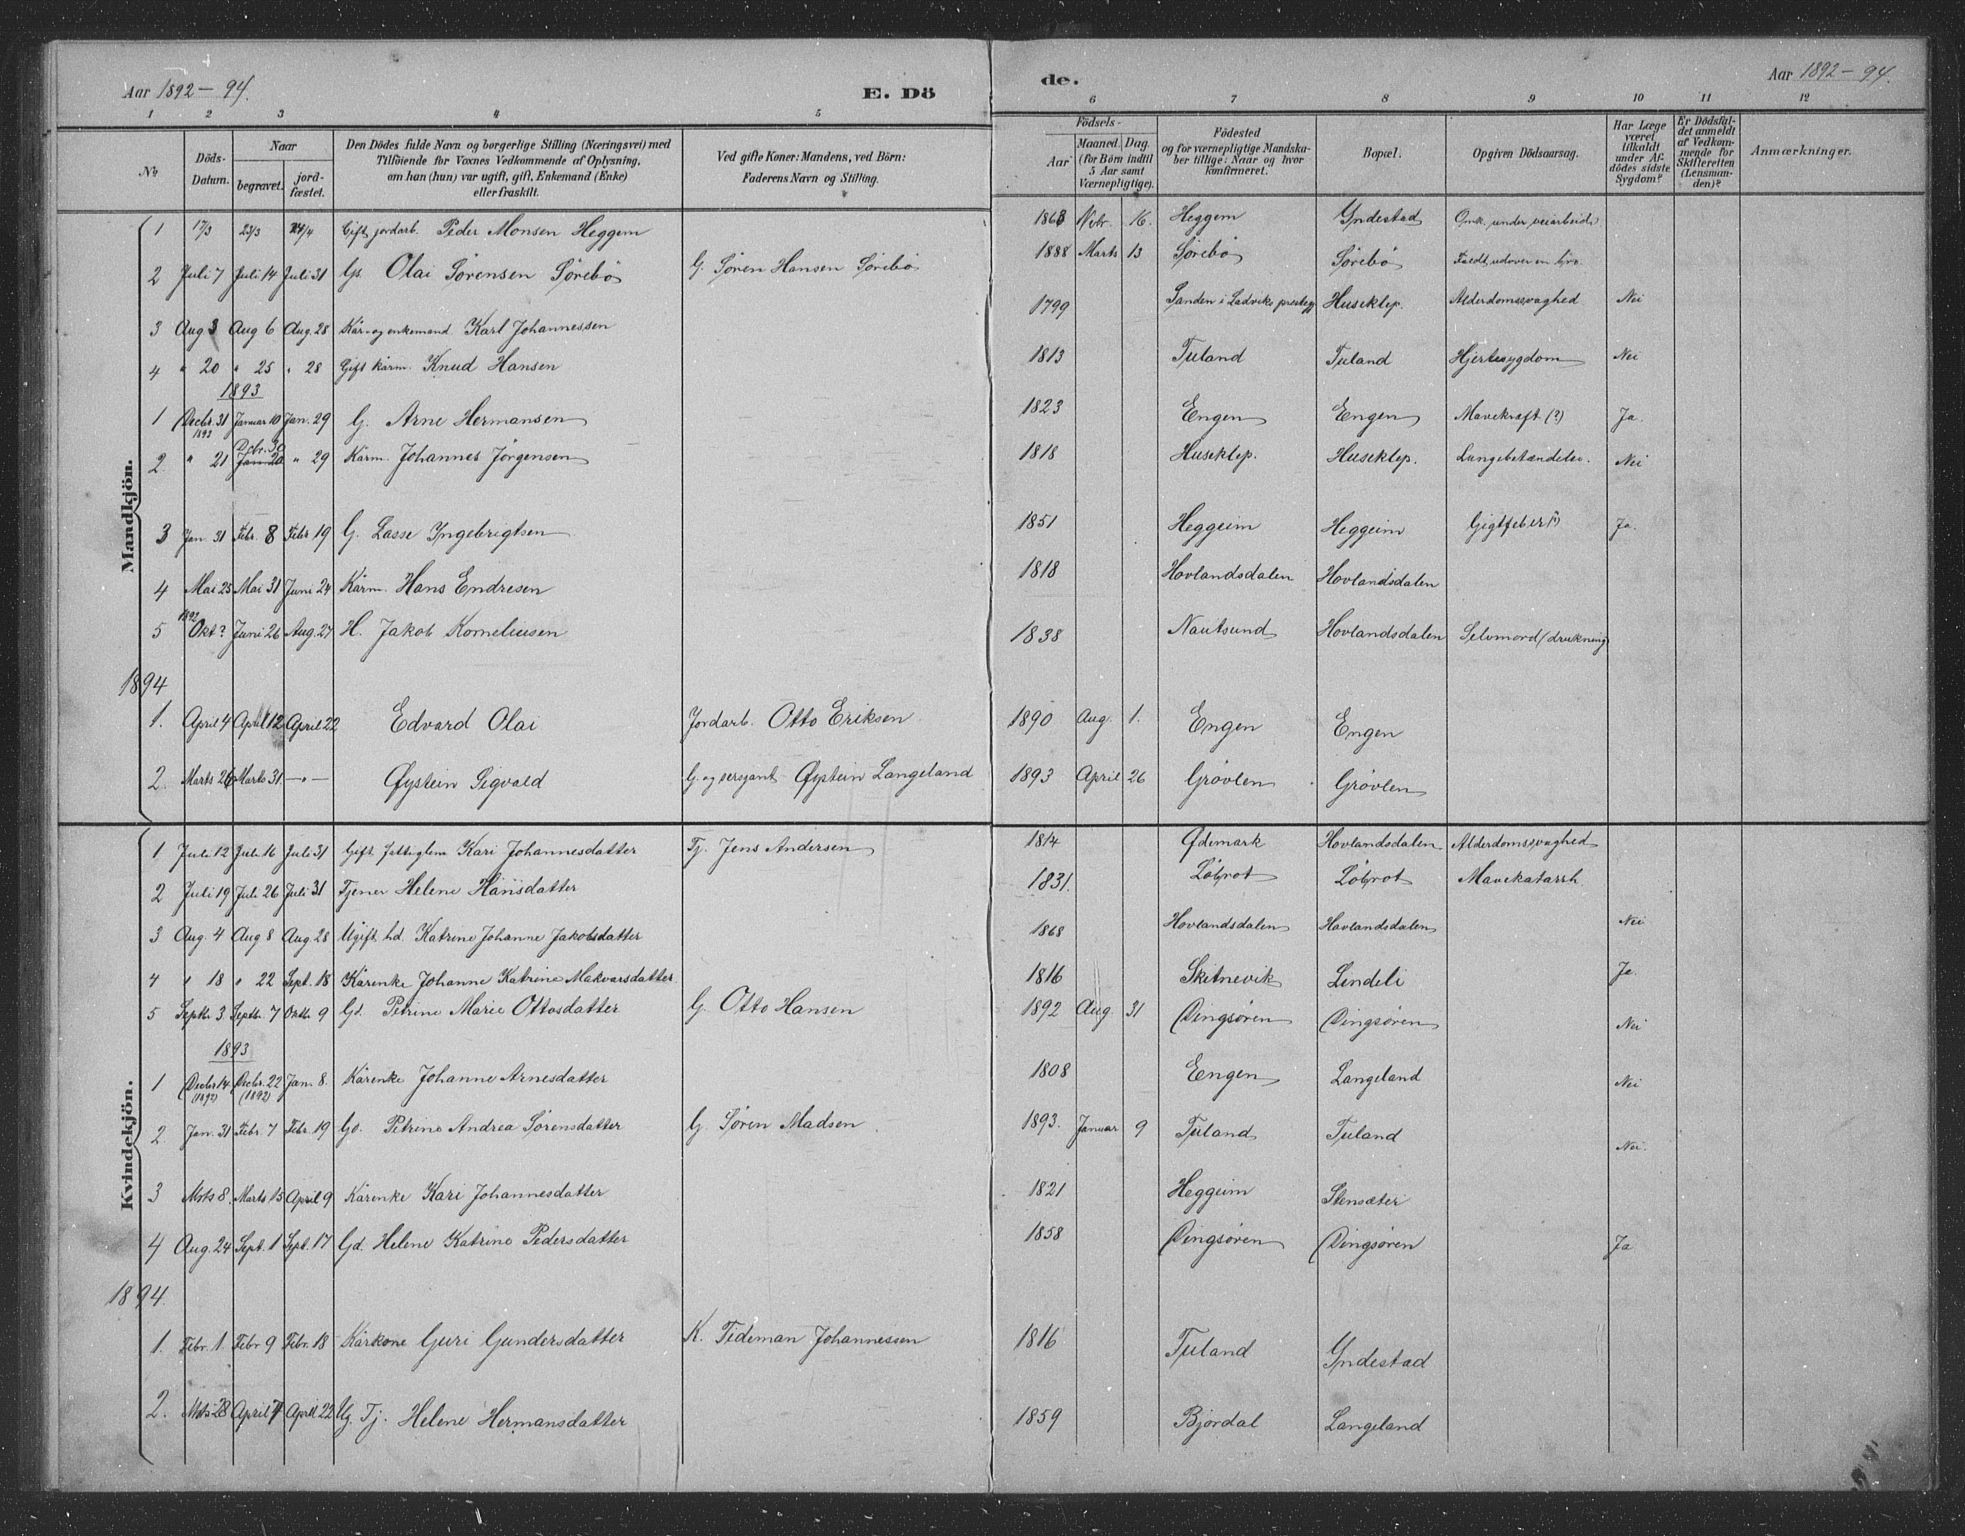 Aar 1892-94. E. Dö de. Aar 1892-94.
1 2 3 4 5 6 7 8 9 10 11 12
No Döds-Datum. Naar begravet. jordfæstet. Den Dödes fulde Navn og borgerlige Stilling (Næringsvei) med Tilföiende for Voxnes Vedkommende af Oplysning, om han (hun) var ugift, gift, Enkemand (Enke) eller fraskilt. Ved gifte Koner: Mandens, ved Börn: Faderens Navn og Stilling. Födsels- Aar Maaned. Dag. (for Börn indtil 5 Aar samt Værnepligtige). Födested og for værnepligtige Mandskaber tillige: Naar og hvor konfirmeret. Bopæl. Opgiven Dödsaarsag. Har Læge været tilkaldt under Afdödes sidste Sygdom? Er Dödsfaldet anmeldt af Vedkommende for Skifteretten (Lensmanden)? Anmærkninger.
Mandkjön.
1 17/3 23/3 24/4 Gift jordarb. Peder Monsen Heggem 1863 Novbr. 16. Heggem Yndestad Omk. under veiarbeide
2 Juli 7 Juli 14 Juli 31 Gs. Olai Sørensen Sørebø G. Søren Hansen Sørebø 1888 Marts 13 Sørebø Sørebø Faldt udover en bro.
3 Aug 3 Aug 6 Aug. 28 Kår- og enkemand Karl Johannessen 1799 Sanden i Ladviks prestegj Huseklep. Alderdomssvaghed Nei
4 " 20 " 25 " 28 Gift kårm. Knud Hansen 1813 Tuland Tuland Hjertesygdom Nei
1893
1 Decbr. 31 1893 Januar 10 Jan. 29 G. Arne Hermansen 1823 Engen Engen Mavekræft (?) Ja.
2. " 21 Dcbr. 30 Jan 20 " 29 Kårm. Johannes Jørgensen 1818 Huseklep. Huseklep. Lungebetændelse. Nei
3 Jan. 31 Febr. 8 Febr 19 G. Lasse Ingebrigtsen 1851 Heggeim Heggeim Gigtfeber (?) Ja.
4 Mai 25 Mai 31 Juni 24 Kårm. Hans Endresen 1818 Hovlandsdalen Hovlandsdalen
5 1892 Okt? Juni 26 Aug. 27 H. Jakob Korneliusen 1838 Nautsund Hovlandsdalen Selvmord (drukning)
1894
1. April 4 April 12 April 22 Edvard Olai Jordarb. Otto Eriksen 1890 Aug. 1. Engen Engen
2. Marts 26 Marts 31. —"— Øystein Sigvald G. og sersjant Øystein Langeland 1893 April 26 Grøvlen Grøvlen
Kvindekjön.
1 Juli 12 Juli 16 Juli 31 Gift fattiglem Kari Johannesdatter Tj. Jens Andersen 1814 Ødemark Hovlandsdalen Alderdomssvaghed
2 Juli 19 Juli 26 Juli 31 Tjener Helene Hansdatter 1831. Løbrot Løbrot Mavekatarrh
3 Aug. 4 Aug 8 Aug. 28 Ugift hd. Katrine Johanne Jakobsdatter 1868 Hovlandsdalen Hovlandsdalen Nei
4 " 18 " 22 Sept. 18 Kårenke Johanne Katrine Makvarsdatter 1816 Skitnevik Lendeli Ja.
5 Septbr 3 Septbr 7 Oktbr 9 Gd. Petrine Marie Ottosdatter G. Otto Hansen 1892 Aug. 31 Dingsøren Dingsøren Nei
1893
1 Decbr 14 (1892) Decbr. 22 (1892) Jan. 8. Kårenke Johanne Arnesdatter 1808 Engen Langeland Nei
2 Jan. 31 Febr. 7 Febr. 19 Gd. Petrine Andrea Sørensdatter G. Søren Madsen 1893. Januar 9 Tuland Tuland Nei.
3 Mrts 8. Marts 15 April 9 Kårenke Kari Johannesdatter 1821 Heggeim Stensæter
4 Aug. 24 Sept. 1 Sept. 17 Gd. Helene Katrine Pedersdatter 1858 Dingsøren Dingsøren Ja
1894.
1. Febr. 1. Febr 9 Febr. 18 Kårkone Guri Gundersdatter K. Tideman Johannessen 1816 Tuland Yndestad
2. Mrts 28 April 7 April 22 Ug. Tj. Helene Hermansdatter 1859 Bjordal Langeland